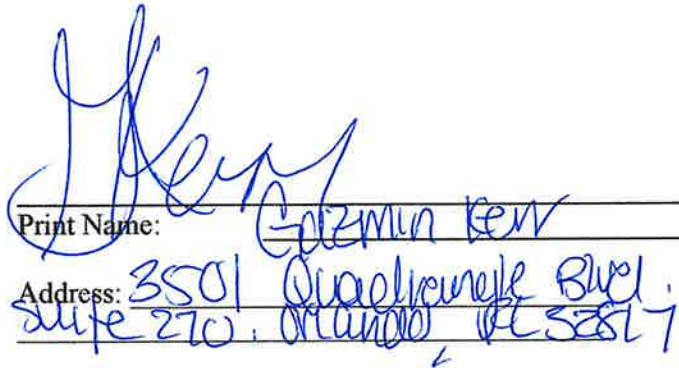 Kerr
Print Name: Kerr
Address: 3501 Quadrangle Blvd.
Suite 270. Orlando, FL 32817